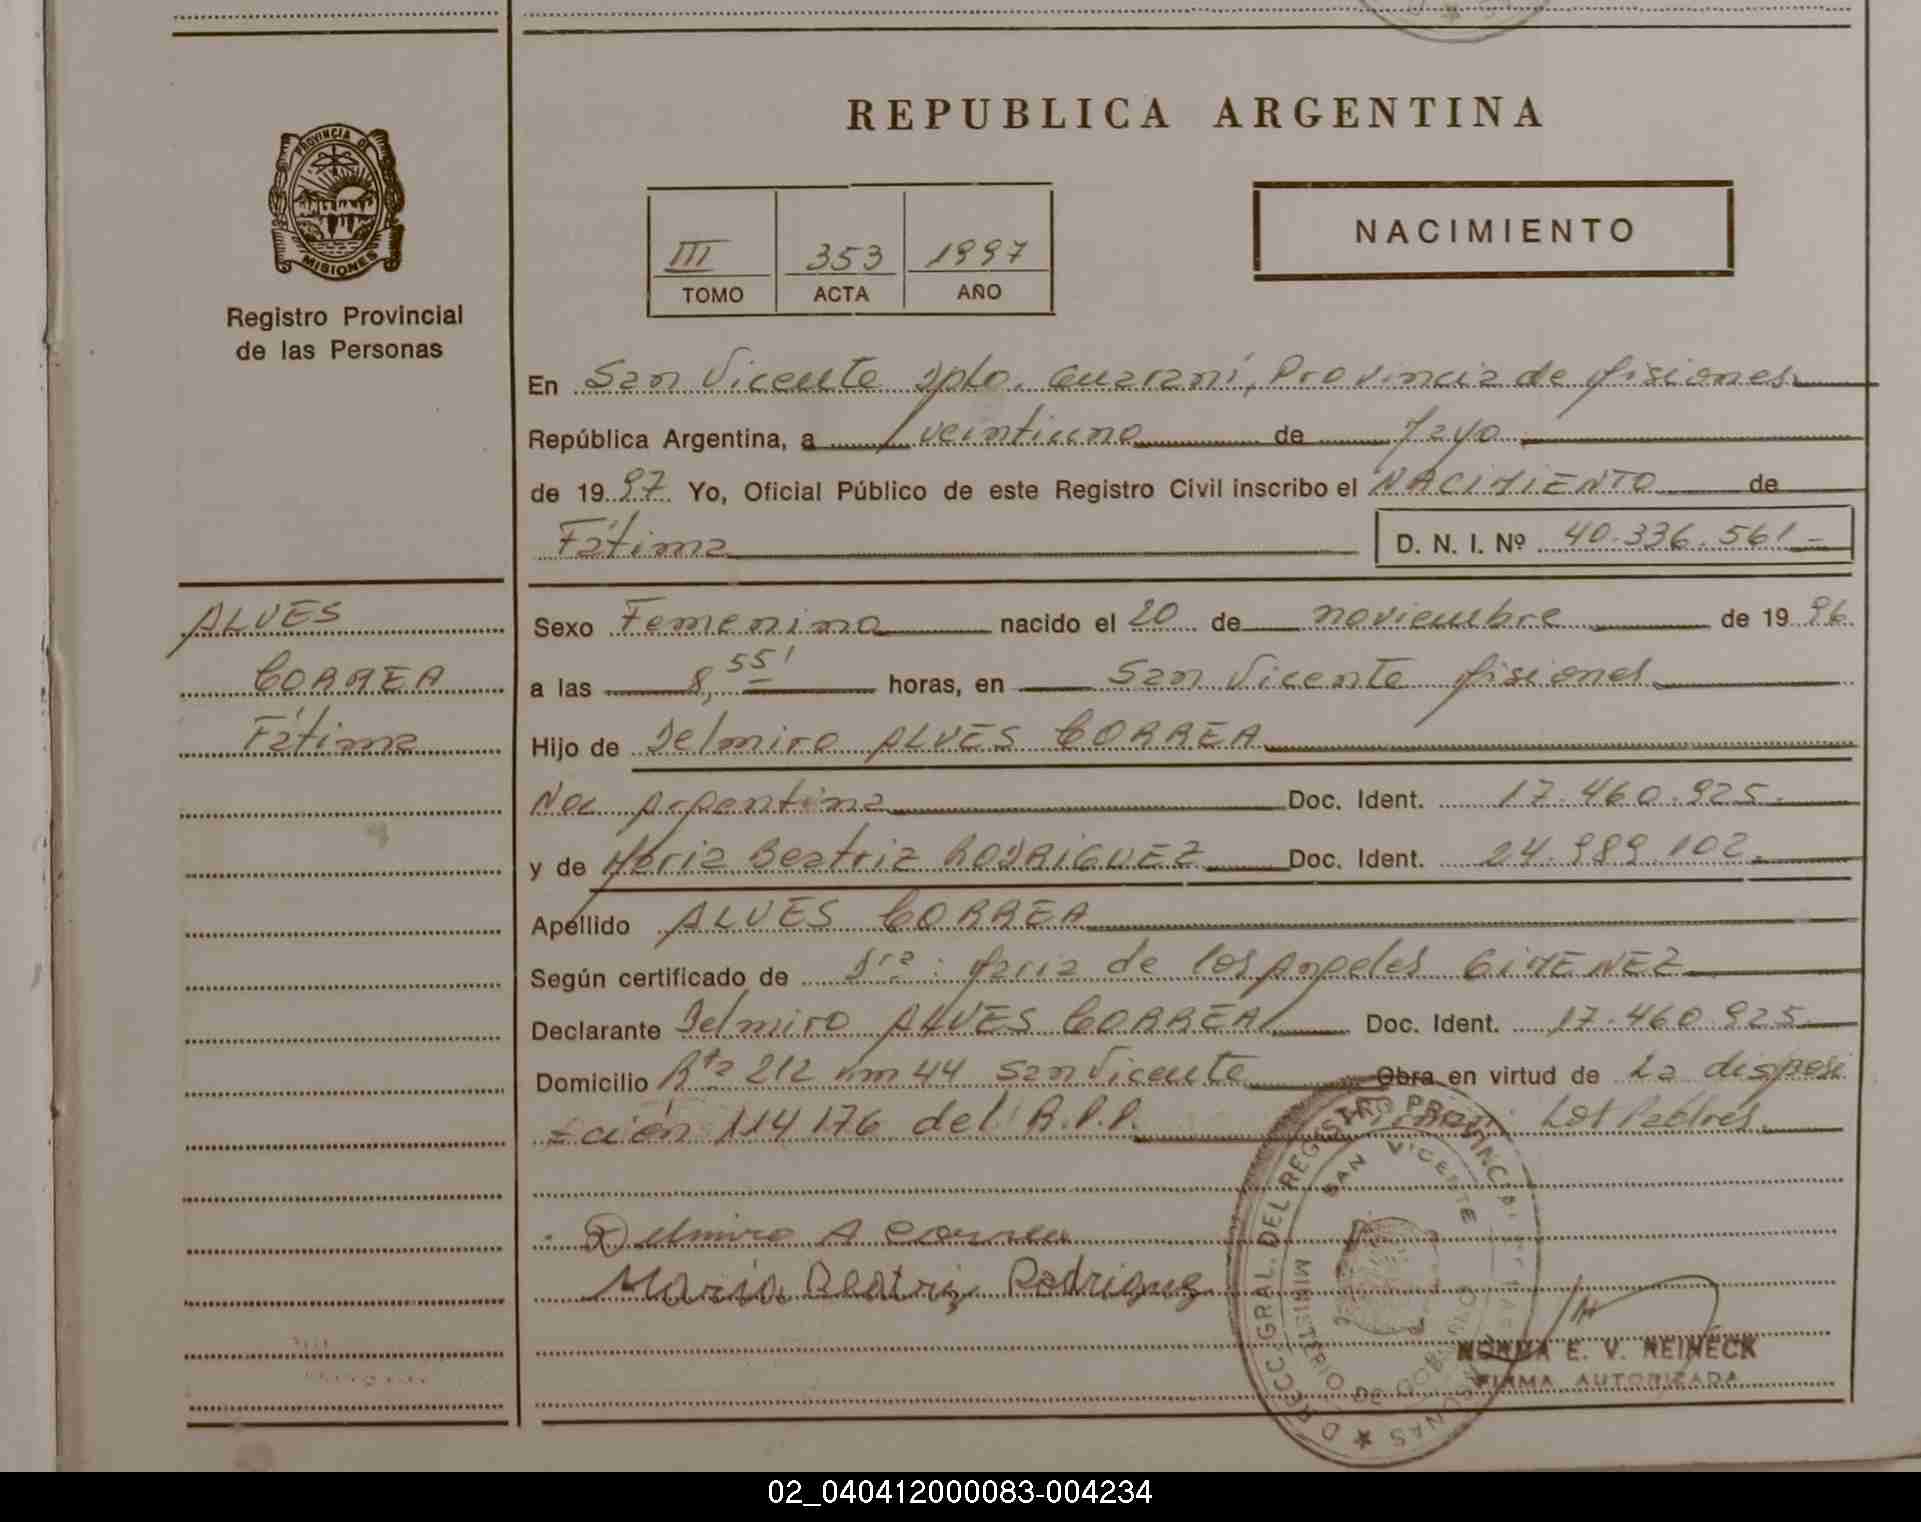 REPUBLICA ARGENTINA
PROVINCIA DE
MISIONES
Registro Provincial
de las Personas
III 353 1997
TOMO ACTA AÑO
NACIMIENTO
En San Vicente Dpto. Guaraní, Provincia de Misiones
República Argentina, a veintiuno de Mayo
de 1997 Yo, Oficial Público de este Registro Civil inscribo el NACIMIENTO de
Fátima D. N. I. Nº 40.336.561-
ALVES
CORREA
Fátima
Sexo Femenino nacido el 20 de noviembre de 1996
a las 8,55' horas, en San Vicente Misiones
Hijo de Delmiro ALVES CORREA
Nac Argentina Doc. Ident. 17.460.925.
y de María Beatriz RODRIGUEZ Doc. Ident. 24.989.102.
Apellido ALVES CORREA
Según certificado de Dra: María de los Angeles GIMENEZ
Declarante Delmiro ALVES CORREA Doc. Ident. 17.460.925
Domicilio Rta 212 km 44 San Vicente Obra en virtud de La disposi
ción 114176 del R.P.P. Los Padres.
Delmiro A Correa
María Beatriz Rodriguez
DIRECC. GRAL. DEL REGISTRO PROVINCIAL DE LAS PERSONAS
SAN VICENTE
MINISTERIO DE GOBIERNO
NORMA E. V. REINECK
FIRMA AUTORIZADA
02_040412000083-004234